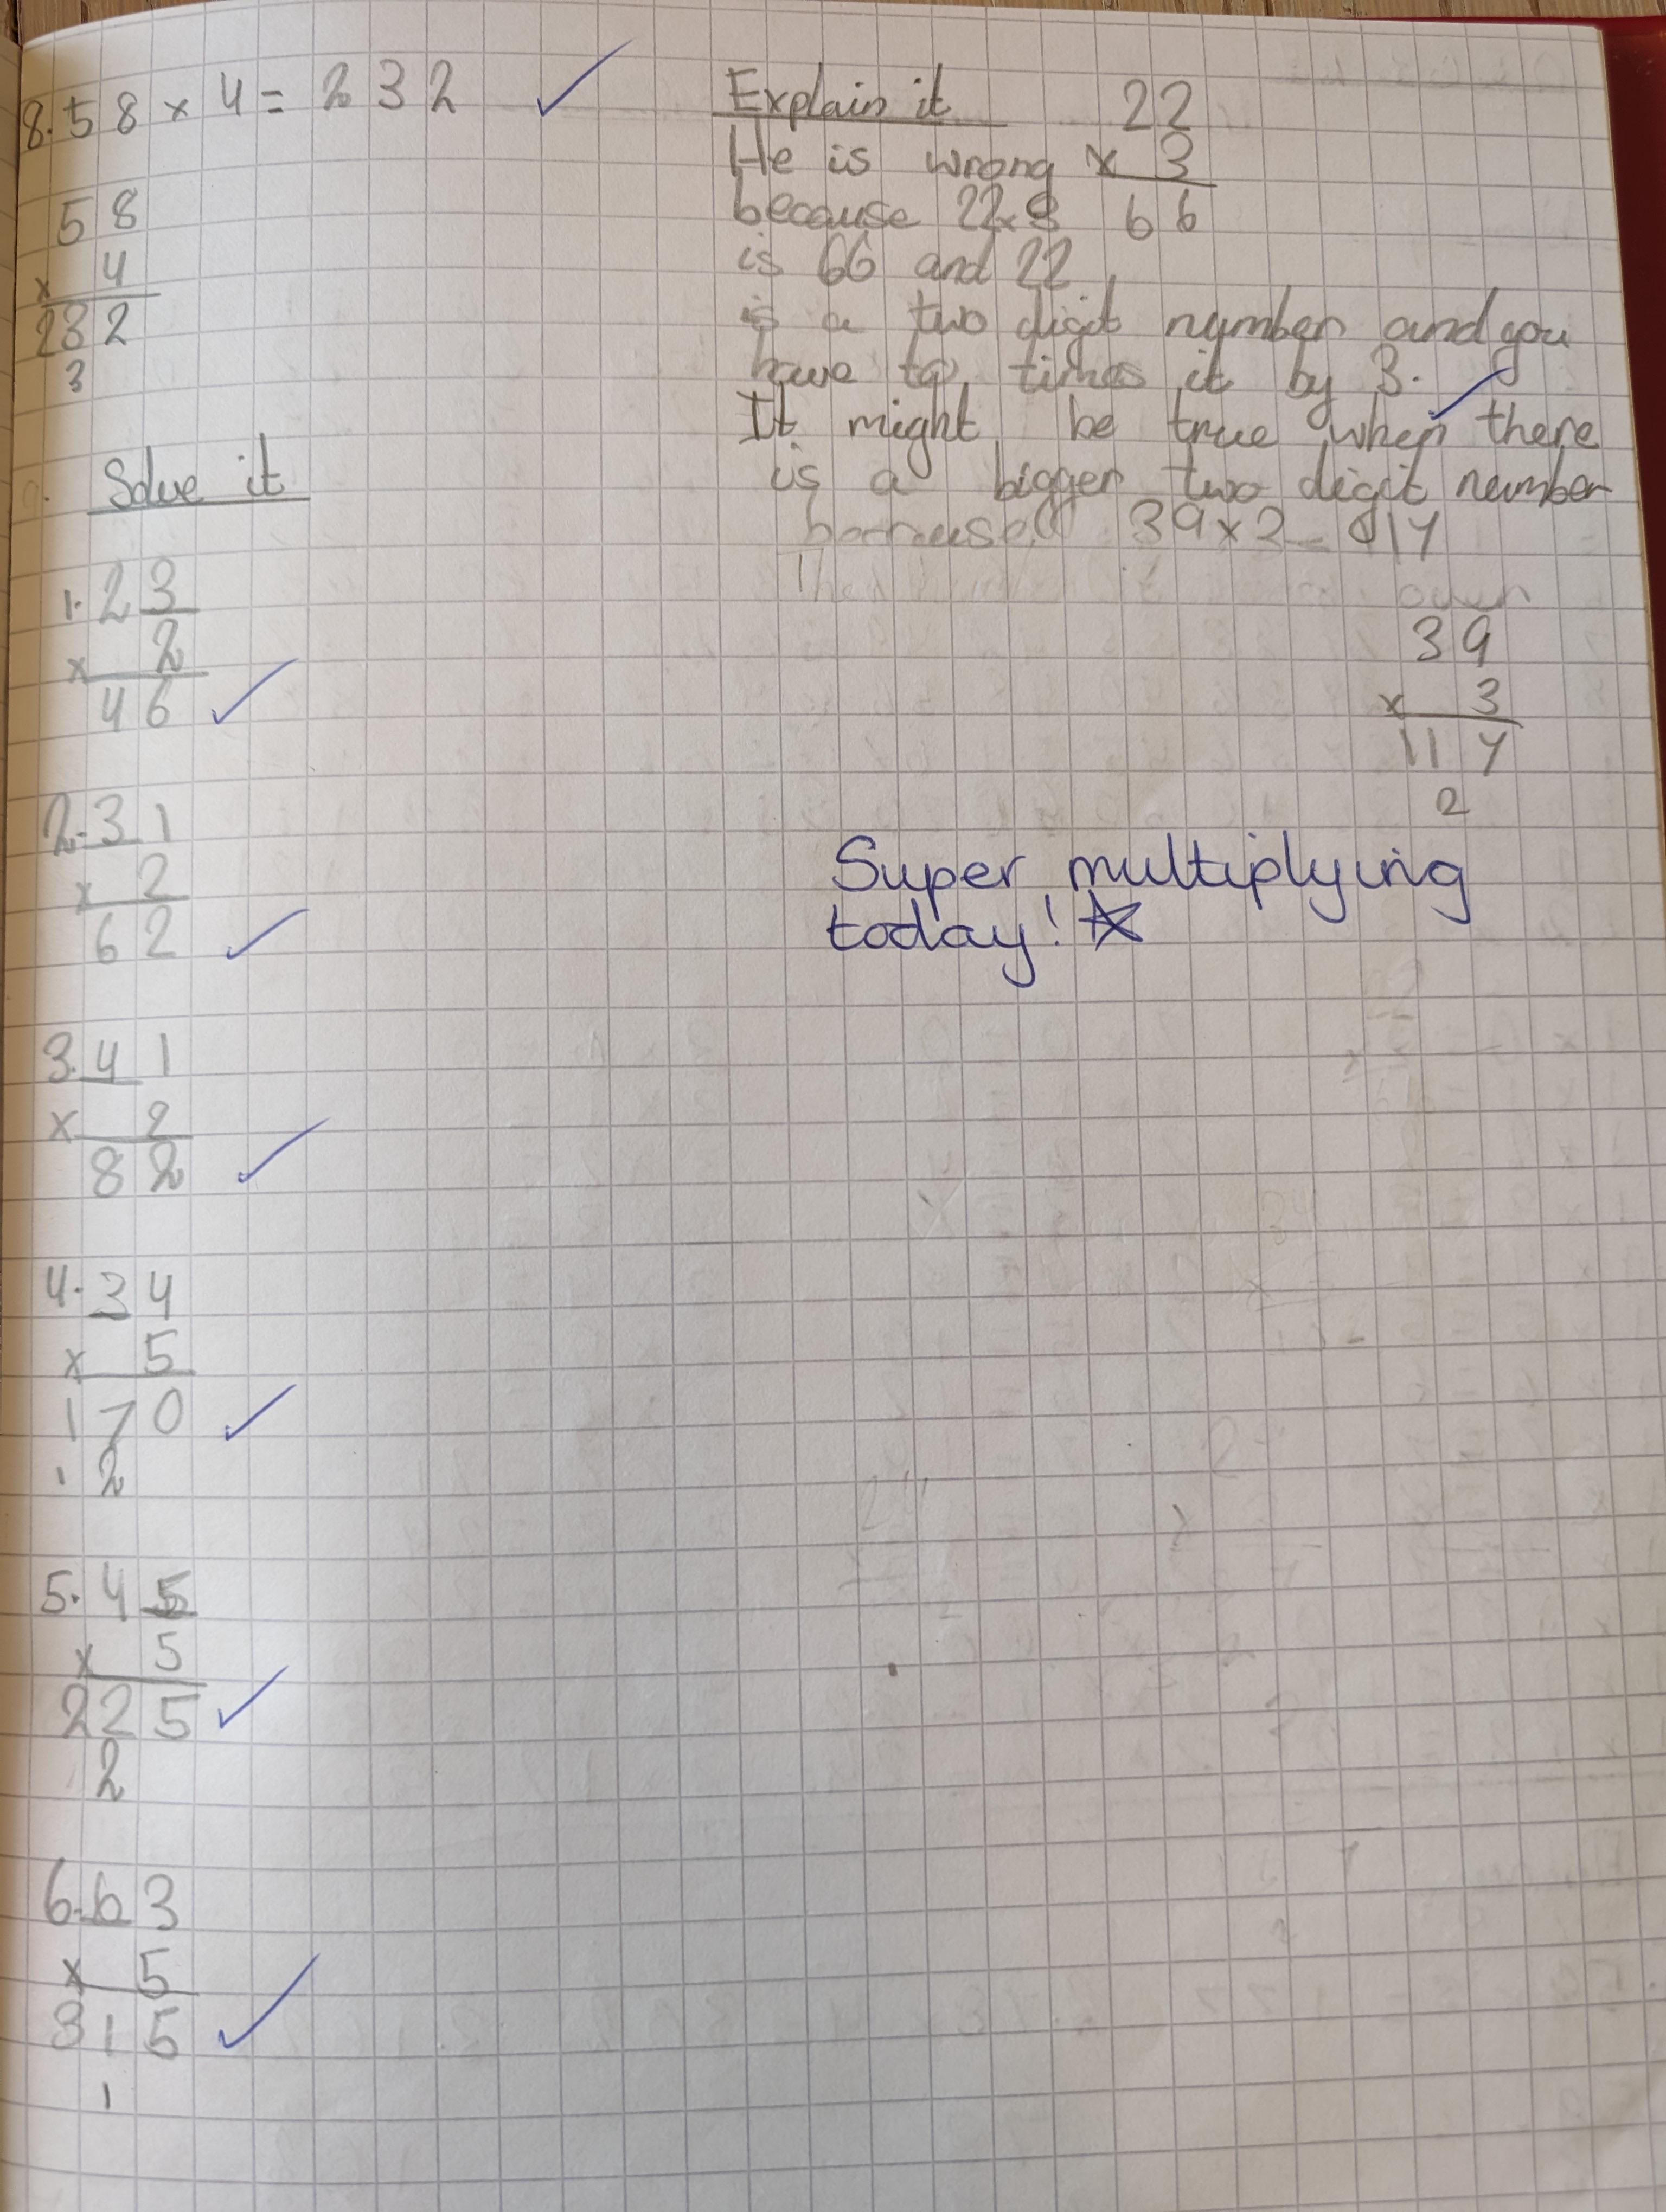 8. 58 × 4 = 232
58
× 4
232
3
Solve it
1. 23
× 2
46
2. 31
× 2
62
3. 41
× 2
82
4. 34
× 5
170
1 2
5. 45
× 5
225
2
6. 63
× 5
315
1
Explain it
He is wrong
because 22×3
is 66 and 22
is a two digit number and you
have to times it by 3.
It might be true when there
is a bigger two digit number
because 39×3= 117
22
× 3
66
39
× 3
117
2
Super multiplying
today!